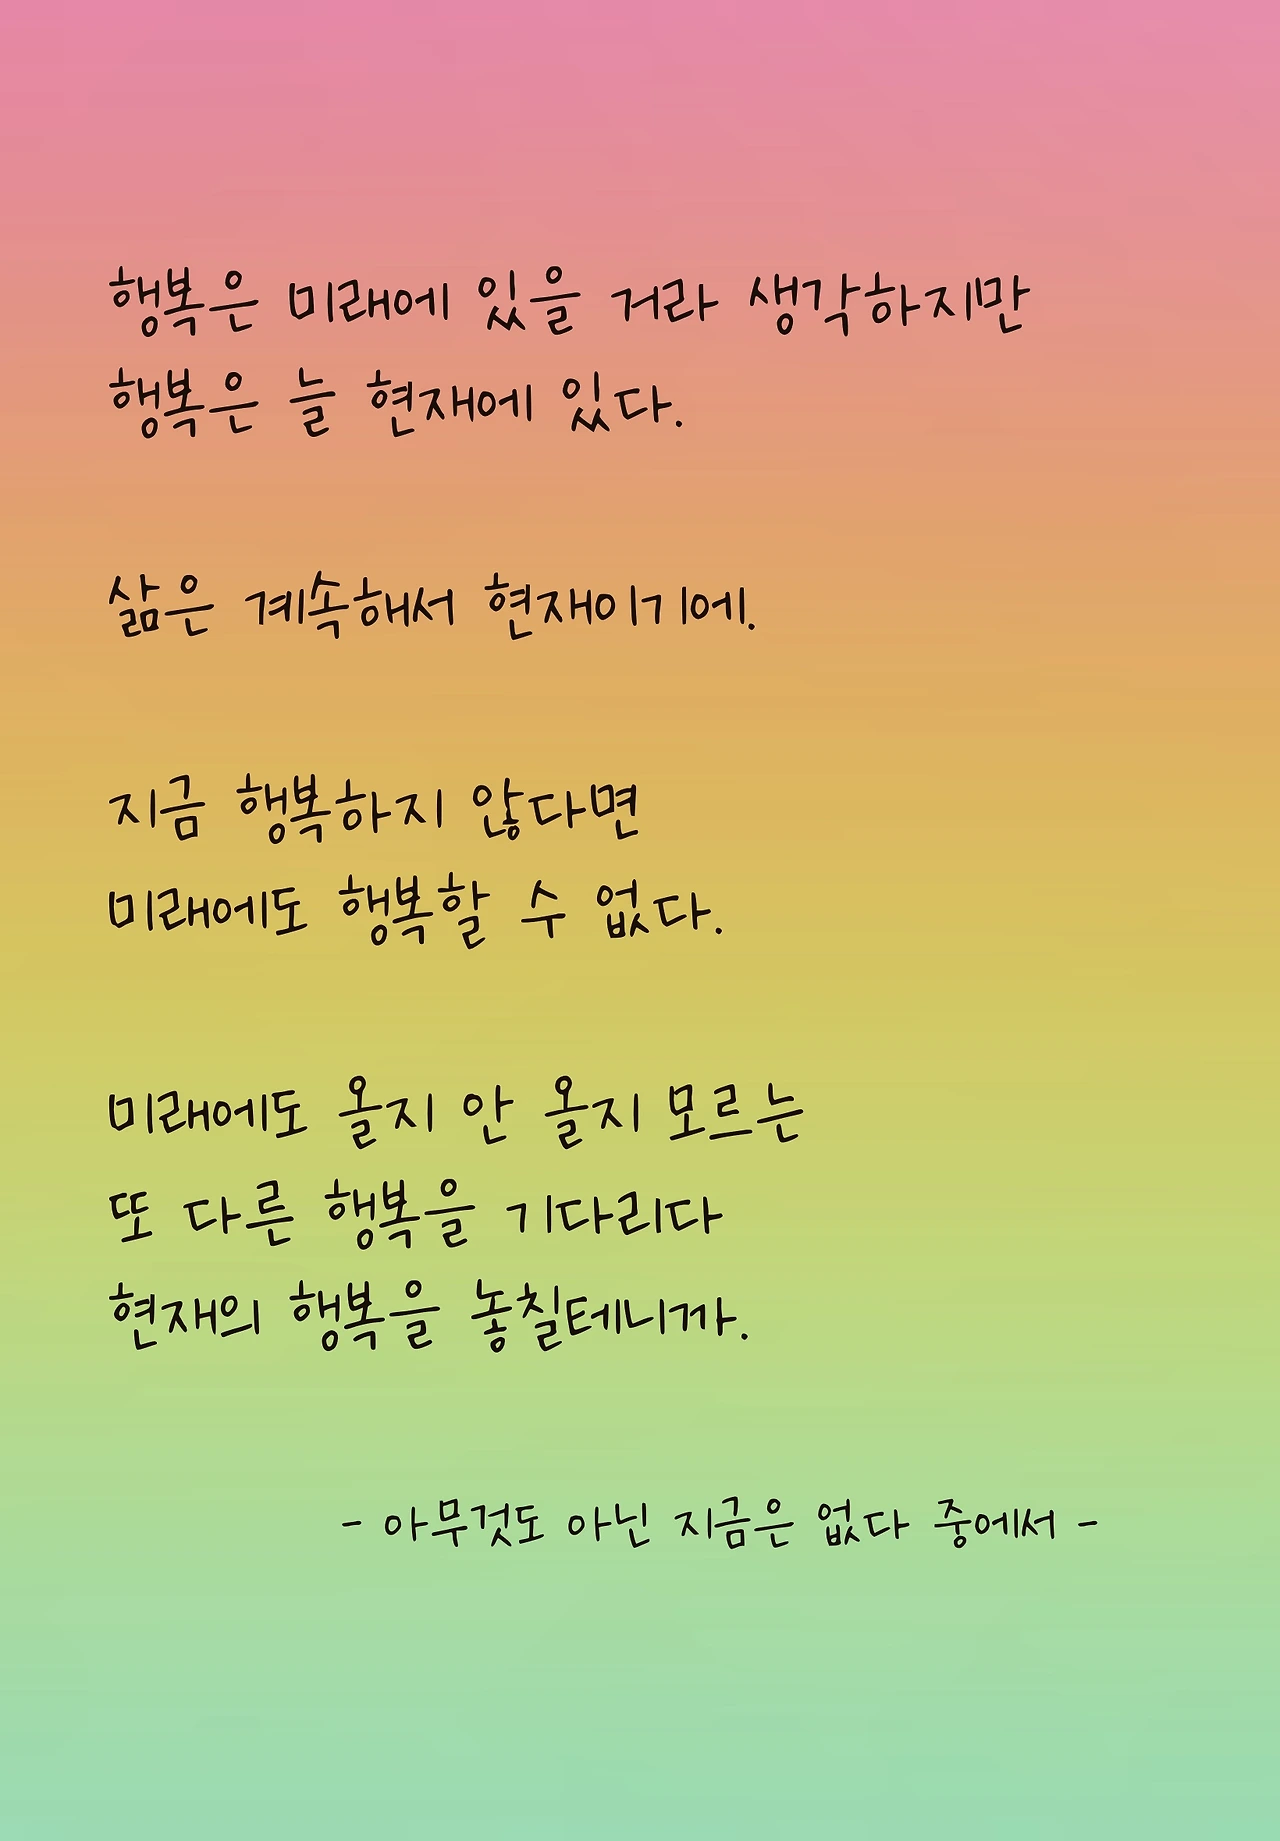 행복은 미래에 있을 거라 생각하지만
행복은 늘 현재에 있다.
삶은 계속해서 현재이기에.
지금 행복하지 않다면
미래에도 행복할 수 없다.
미래에도 올지 안 올지 모르는
또 다른 행복을 기다리다
현재의 행복을 놓칠테니까.
- 아무것도 아닌 지금은 없다 중에서 -